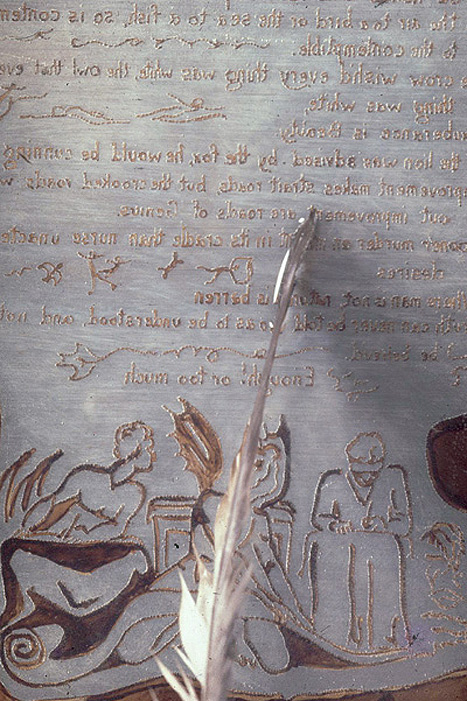 The air to a bird or the sea to a fish, so is con
to the contemptible.
crow wish'd every thing was white, the owl that eve
thing was white,
uberance is Beauty
he lion was advised by the fox, he would be cunning
provement makes strait roads, but the crooked roads w
out improvement are roads of Genius.
ooner murder an in t in its cradle than nurse unacte
desires
here man is not nature is barren
ruth can never be told so as to be understood, and not
be believed.
Enough! or too much